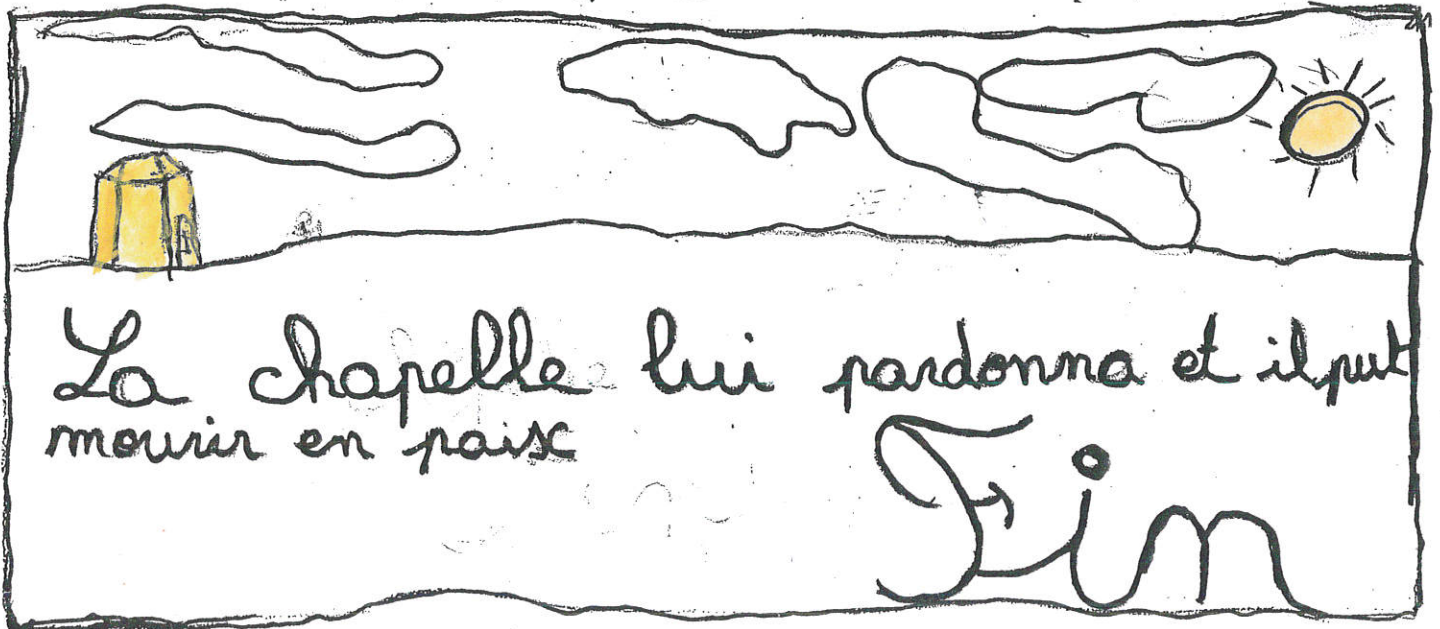 La chapelle lui pardonna et il put
mourir en paix
Fin